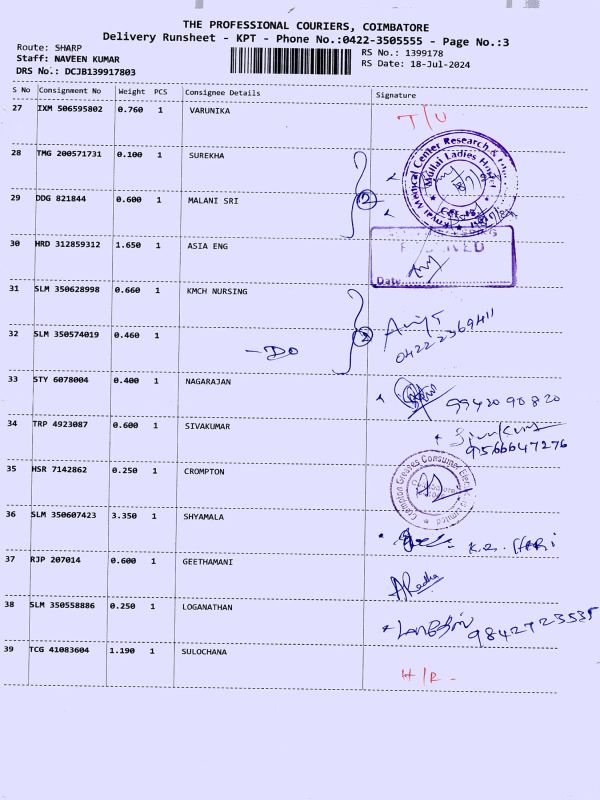 THE PROFESSIONAL COURIERS, COIMBATORE
Delivery Runsheet - KPT - Phone No.:0422-3505555 - Page No.:3
Route: SHARP
Staff: NAVEEN KUMAR
DRS No.: DCJB139917803
RS No.: 1399178
RS Date: 18-Jul-2024
S No Consignment No Weight PCS Consignee Details Signature
27 IXM 506595802 0.760 1 VARUNIKA T/U
28 TMG 200571731 0.100 1 SUREKHA
29 DDG 821844 0.600 1 MALANI SRI
2
30 HRD 312859312 1.650 1 ASIA ENG
Date
31 SLM 350628998 0.660 1 KMCH NURSING
32 SLM 350574019 0.460 1 - Do
2
04222369411
33 STY 6078004 0.400 1 NAGARAJAN 9942090820
34 TRP 4923087 0.600 1 SIVAKUMAR
9566647276
35 HSR 7142862 0.250 1 CROMPTON
Crompton Greaves Consumer Electricals Limited
36 SLM 350607423 3.350 1 SHYAMALA K.R. HARI
37 RJP 207014 0.600 1 GEETHAMANI A Radha
38 SLM 350558886 0.250 1 LOGANATHAN 9842723535
39 TCG 41083604 1.190 1 SULOCHANA H/R -